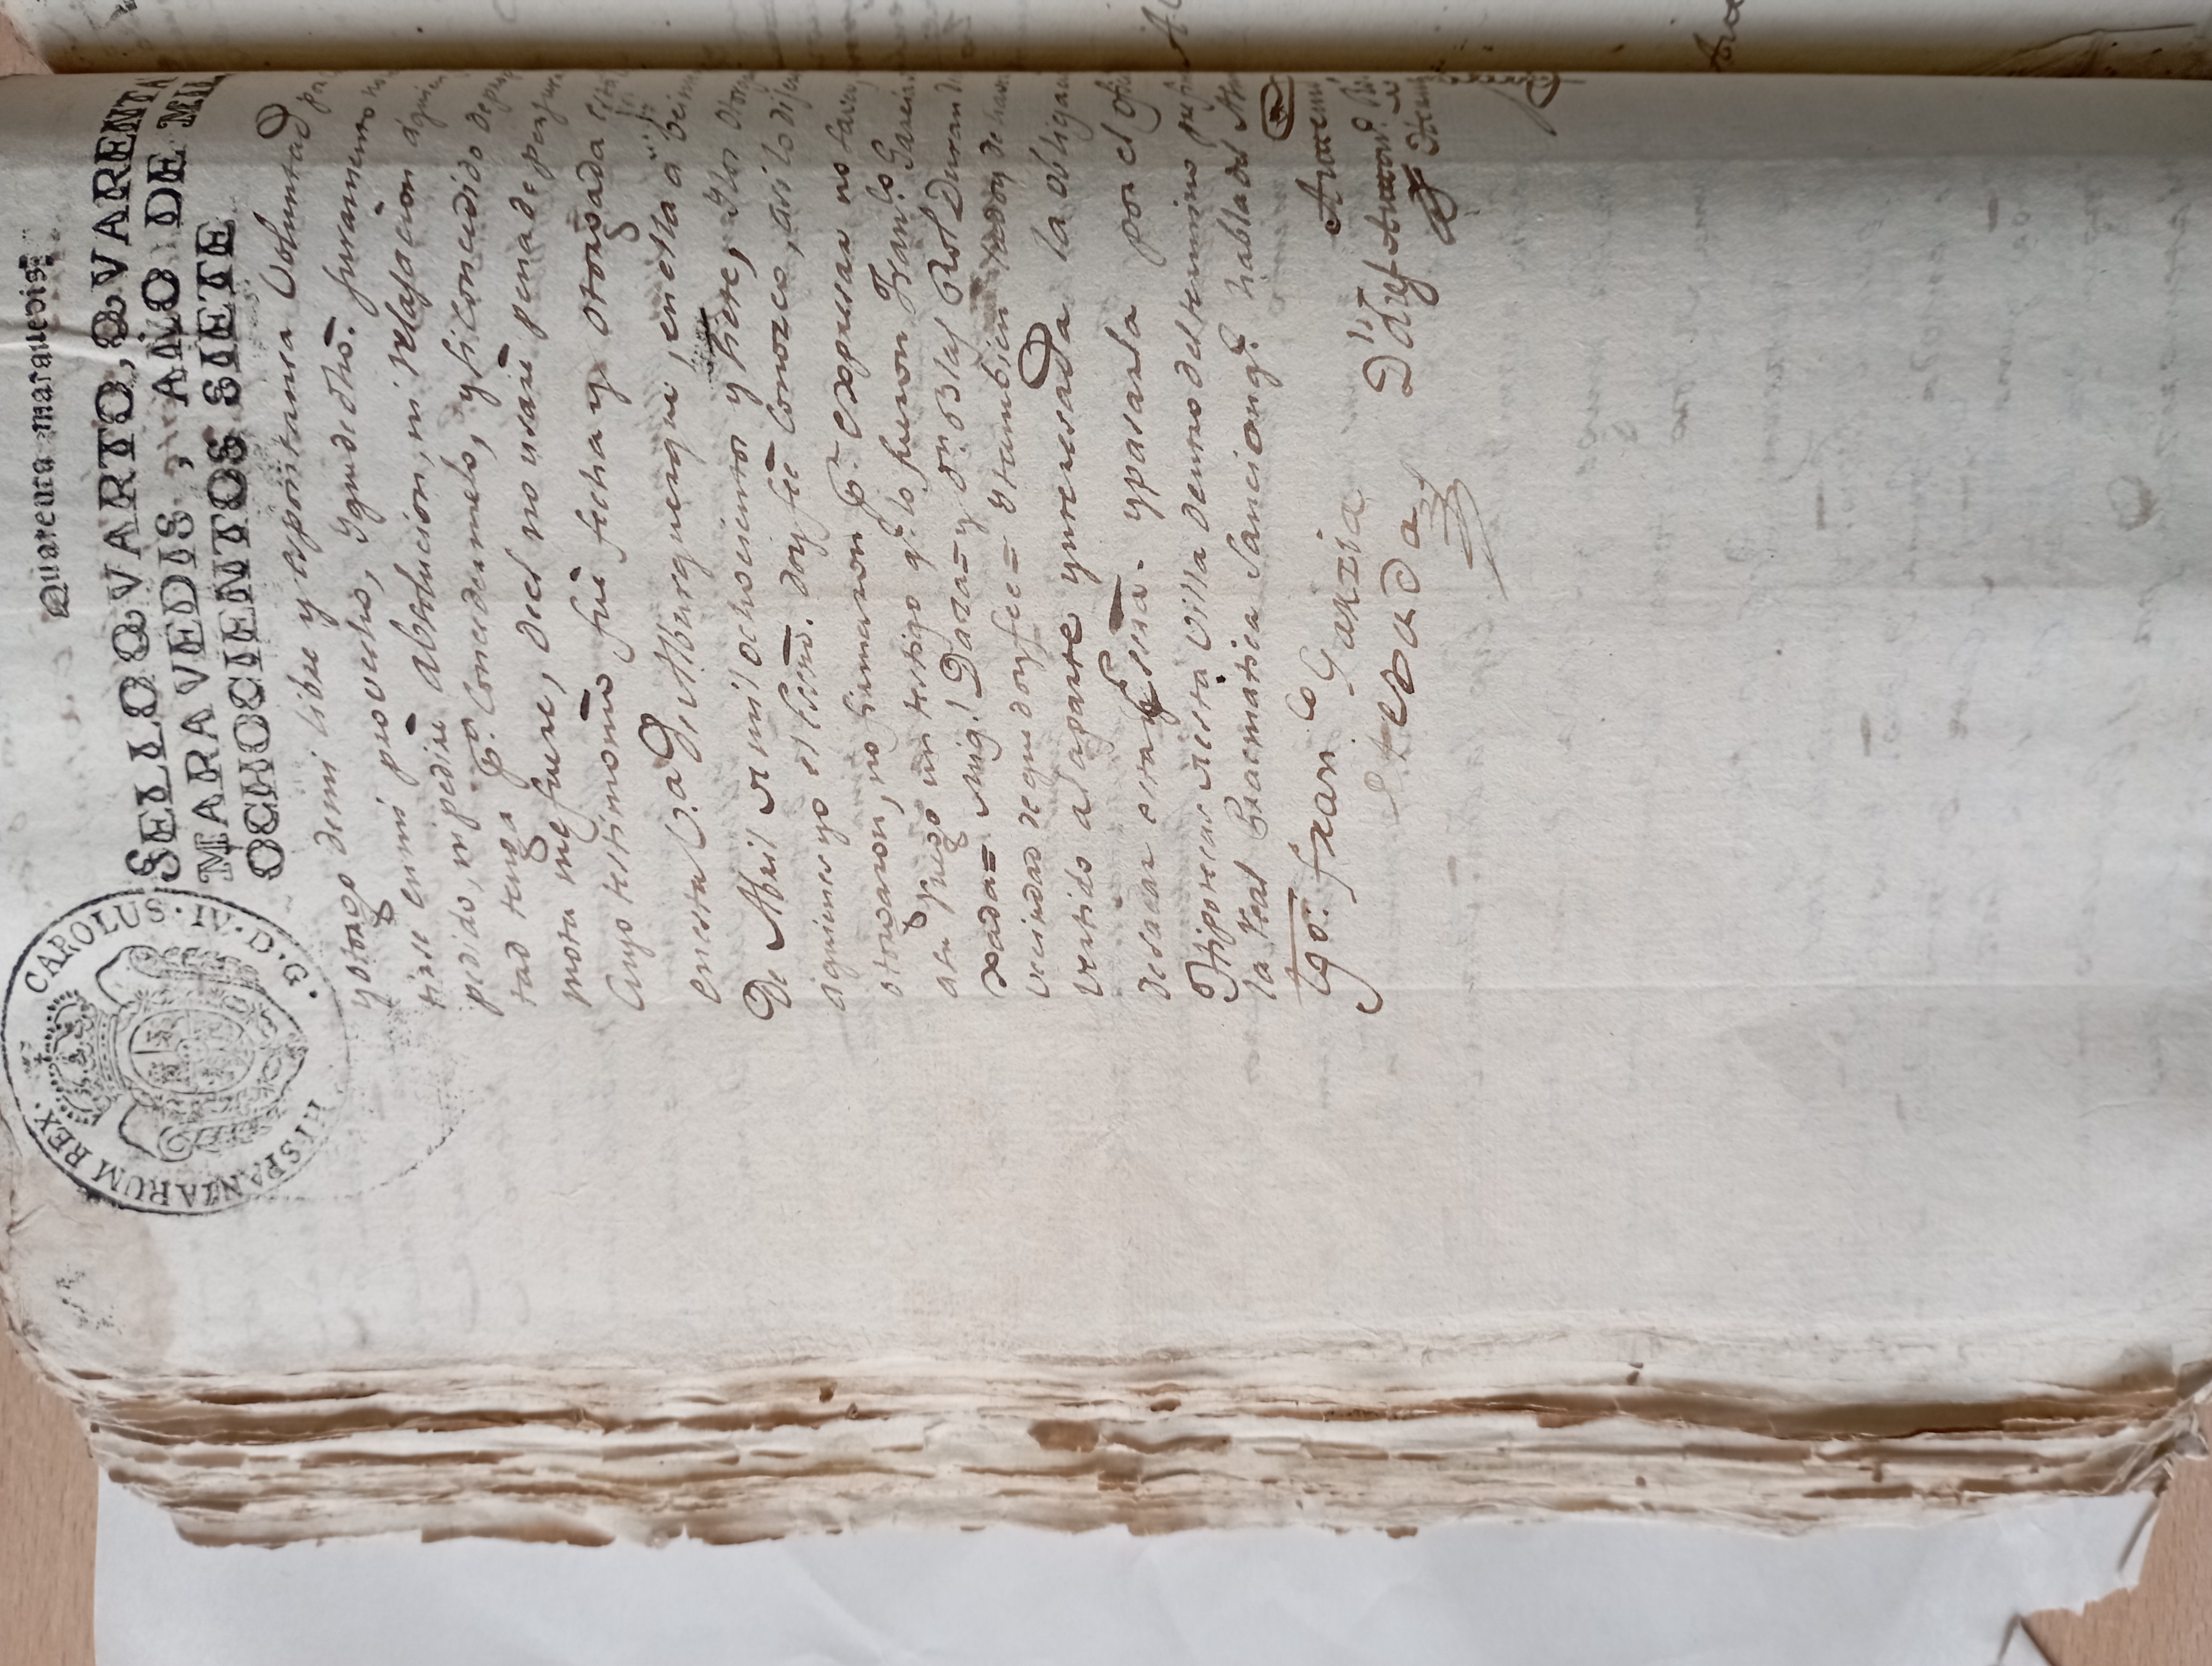 Quarenta maravedis.
HISPANIARUM REX. CAROLUS. IV. D. G.
SELLO QVARTO, QVARENTA
MARAVEDIS, AÑO DE MIL
OCHOCIENTOS SIETE
y otorgo de mi libre y espontanea Voluntad por
tirse en mi provecho, y que de dho. Juramento no
pedido, ni pedirè absolucion, ni relajacion à quien
tad tenga p.ª Concedermelo, y si Concedido de prop
motu me fuere, de el no usarè pena de perjura
Cuyo testimonio fuè fecha y otorgada esta
en esta V.ª de Alburquerque, en ella à
De Abril de mil ochocientos y siete, Y los Otorg
à quienes yo el Essno. doy feè Conozco, asi lo dijeron
otorgaron, no firmaron p.r expresar no saver,
a su ruego un testigo q.e lo fueron Fran.co Garcia
xada= Mig.l Daza= y Dn. Blas Rol Duran
vecindad de que doy fee= Y tambien la doy de haver
vertido a la parte ynteresada la obligac
de sacar esta Essra. y pasarla por el ofi
Hipotecas de esta Villa dentro del termino prefi
la real Pracmatica Sancion q.e habla del
Tgo. fran.co Garzia
texada
Antemi
Dn